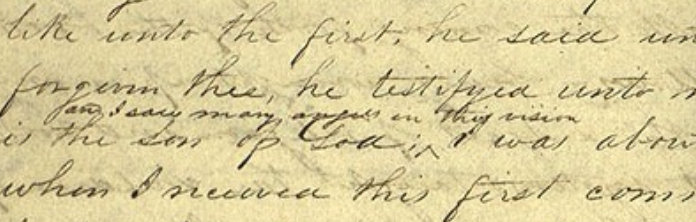 like unto the first, he said un
forgiven thee, he testifyed unto
and I saw many angels in this vision
is the son of God; I was abou
when I received this first com